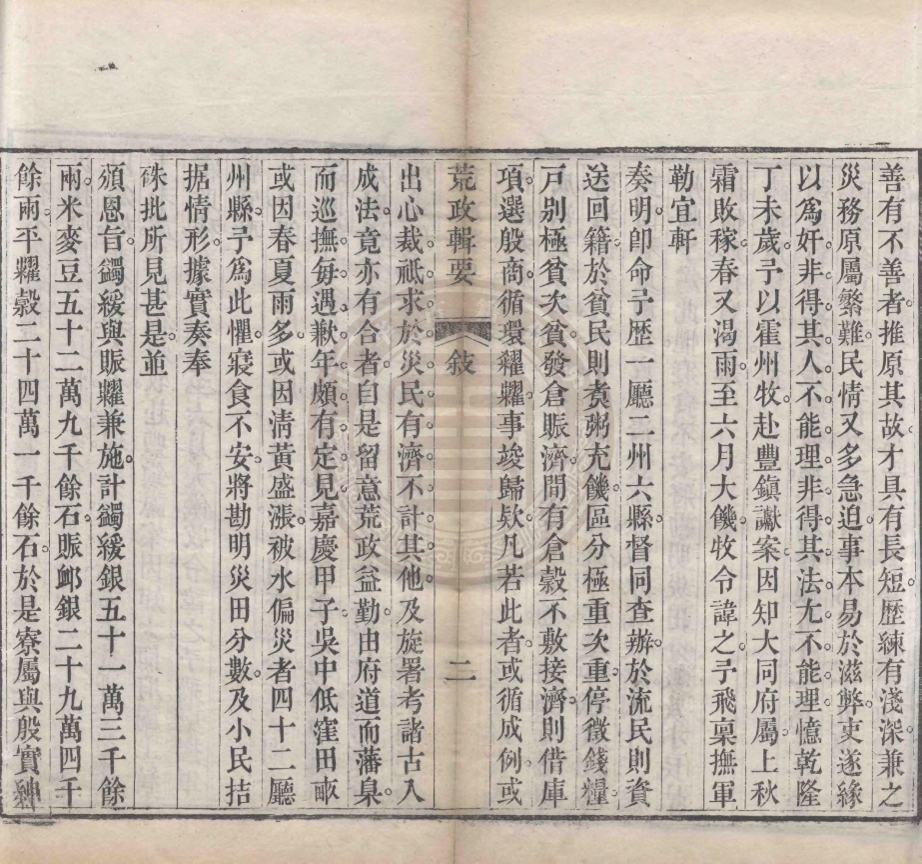 善有不善者推原其故才具有長短歷練有淺深兼之
災務原屬繁難民情又多急迫事本易於滋弊吏遂緣
以爲奸非得其人不能理非得其法尢不能理憶乾隆
丁未歲予以霍州牧赴豐鎮讞案因知大同府屬上秋
霜敗稼春又渴雨至六月大饑牧令諱之予飛稟撫軍
勒宜軒
奏明卽命予歷一廳二州六縣督同查辦於流民則資
送回籍於貧民則煑粥充饑區分極重次重停徵錢糧
戸别極貧次貧發倉賑濟間有倉穀不敷接濟則借庫
項選殷商循環糴糶事竣歸欵凡若此者或循成例或
荒政輯要
敍
二
出心裁祗求於災民有濟不計其他及旋署考諸古人
成法竟亦有合者自是留意荒政益勤由府道而藩臬
而巡撫每遇歉年頗有定見嘉慶甲子吳中低窪田畞
或因春夏雨多或因清黃盛漲被水偏災者四十二廳
州縣予爲此懼寢食不安將勘明災田分數及小民拮
据情形據實奏奉
硃批所見甚是並
頒恩旨蠲緩與賑糶兼施計蠲緩銀五十一萬三千餘
兩米麥豆五十二萬九千餘石賑卹銀二十九萬四千
餘兩平糶穀二十四萬一千餘石於是寮屬與殷實紳